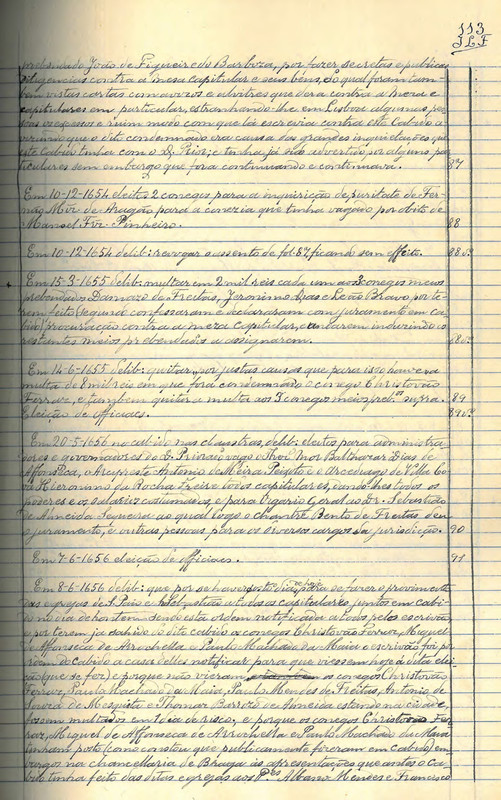 113
J.L.F
prebendado João de Figueiredo Barboza, por fazer secretas e publicas
diligencias contra a mesa capitular e seus bens, o qual foram tam-
bem vistas cartas com avizos e advertres que dera contra a meza e
capitulares em particular, estranhando-lhe em Lisboa algumas pes-
soas o excesso e ruim modo com que lá escrevia contra este Cabido a-
o que o dito condemnado era causa das grandes inquietações que
este Cabido tinha com o D. Prior; e tinha já sido advertido por alguns par-
ticulares sem embargo que fora continuando e continuava. 87
Em 10-12-1654 eleitos 2 conegos para a inquirição de puritate de Fer-
não Mir. de Aragão para a conezia que tinha vagado por obito de
Manoel Fr. Pinheiro. 88
Em 10-12-1654 delib: revogar o assento de fol. 87, ficando sem effeito. 88 vº
Em 15-3-1655 delib: multar em 2 mil reis cada um aos 3 conegos meios
prebendados Damazo de Freitas, Jeronimo Dias e Leão Bravo por te-
rem feito (segundo confessaram e declararam com juramento em ca-
bido) procuração contra a meza capitular, e andarem induzindo os
restantes meios prebendados a assignarem. 88 vº
Em 14-6-1655 delib: quitar, por justas causas que para isso houvera
multa de 8 mil reis em que fora condemnado o conego Christovão
Ferraz, e tambem quitar a multa aos 3 conegos meios preb.os supra. 89
Eleição de officiaes. 89 vº
Em 20-5-1656 no cabido nas claustras, delib: eleitos para administra-
dores e governadores do D. Priorado, vago, o Thes. Mor Balthazar Dias de
Affonseca, o Arcipreste Antonio de Meira Peixoto e o Arcediago de Villa Co-
va Hieronimo da Rocha Freire e todos capitulares, dando-lhes todos os
poderes e os salarios costumados, e para Vigario Geral ao Dr. Sebastião
de Almeida Sequeira ao qual logo o chantre Bento de Freitas deu
o juramento, e outras pessoas para os diversos cargos da jurisdicção. 90
Em 7-6-1656 eleição de officiaes. 91
Em 8-6-1656 delib: que por se haver posto dia de hoje para se fazer o provimento
das egrejas de S. Paio e S. Sebastião a todos os capitulares juntos em cabi-
do no dia de hontem, sendo esta ordem notificada a todos pelo escrivão,
e por terem já sahido do dito cabido os conegos Christovão Ferraz, Miguel
de Affonseca de Arrochella e Paulo Machado da Maia o escrivão foi por
ordem do cabido a casa delles notificar para que viessem hoje á dita elei-
ção que se fez) e porque não vieram os conegos Christovão
Ferraz, Paulo Machado da Maia, Paulo Mendes de Freitas, Antonio de
Souza de Mesquita e Thomaz Barrozo de Almeida estando na cidade
fossem multados em 1 dia de risco, e porque os conegos Christovão Fer-
raz, Miguel de Affonseca de Arrochella e Paulo Machado da Maia
tinham posto (como consta que publicamente fizeram em cabido) em-
bargos na chancellaria de Braga ás apresentações que antes o Ca-
bido tinha feito das ditas egrejas aos P.es Albano Mendes e Francisco